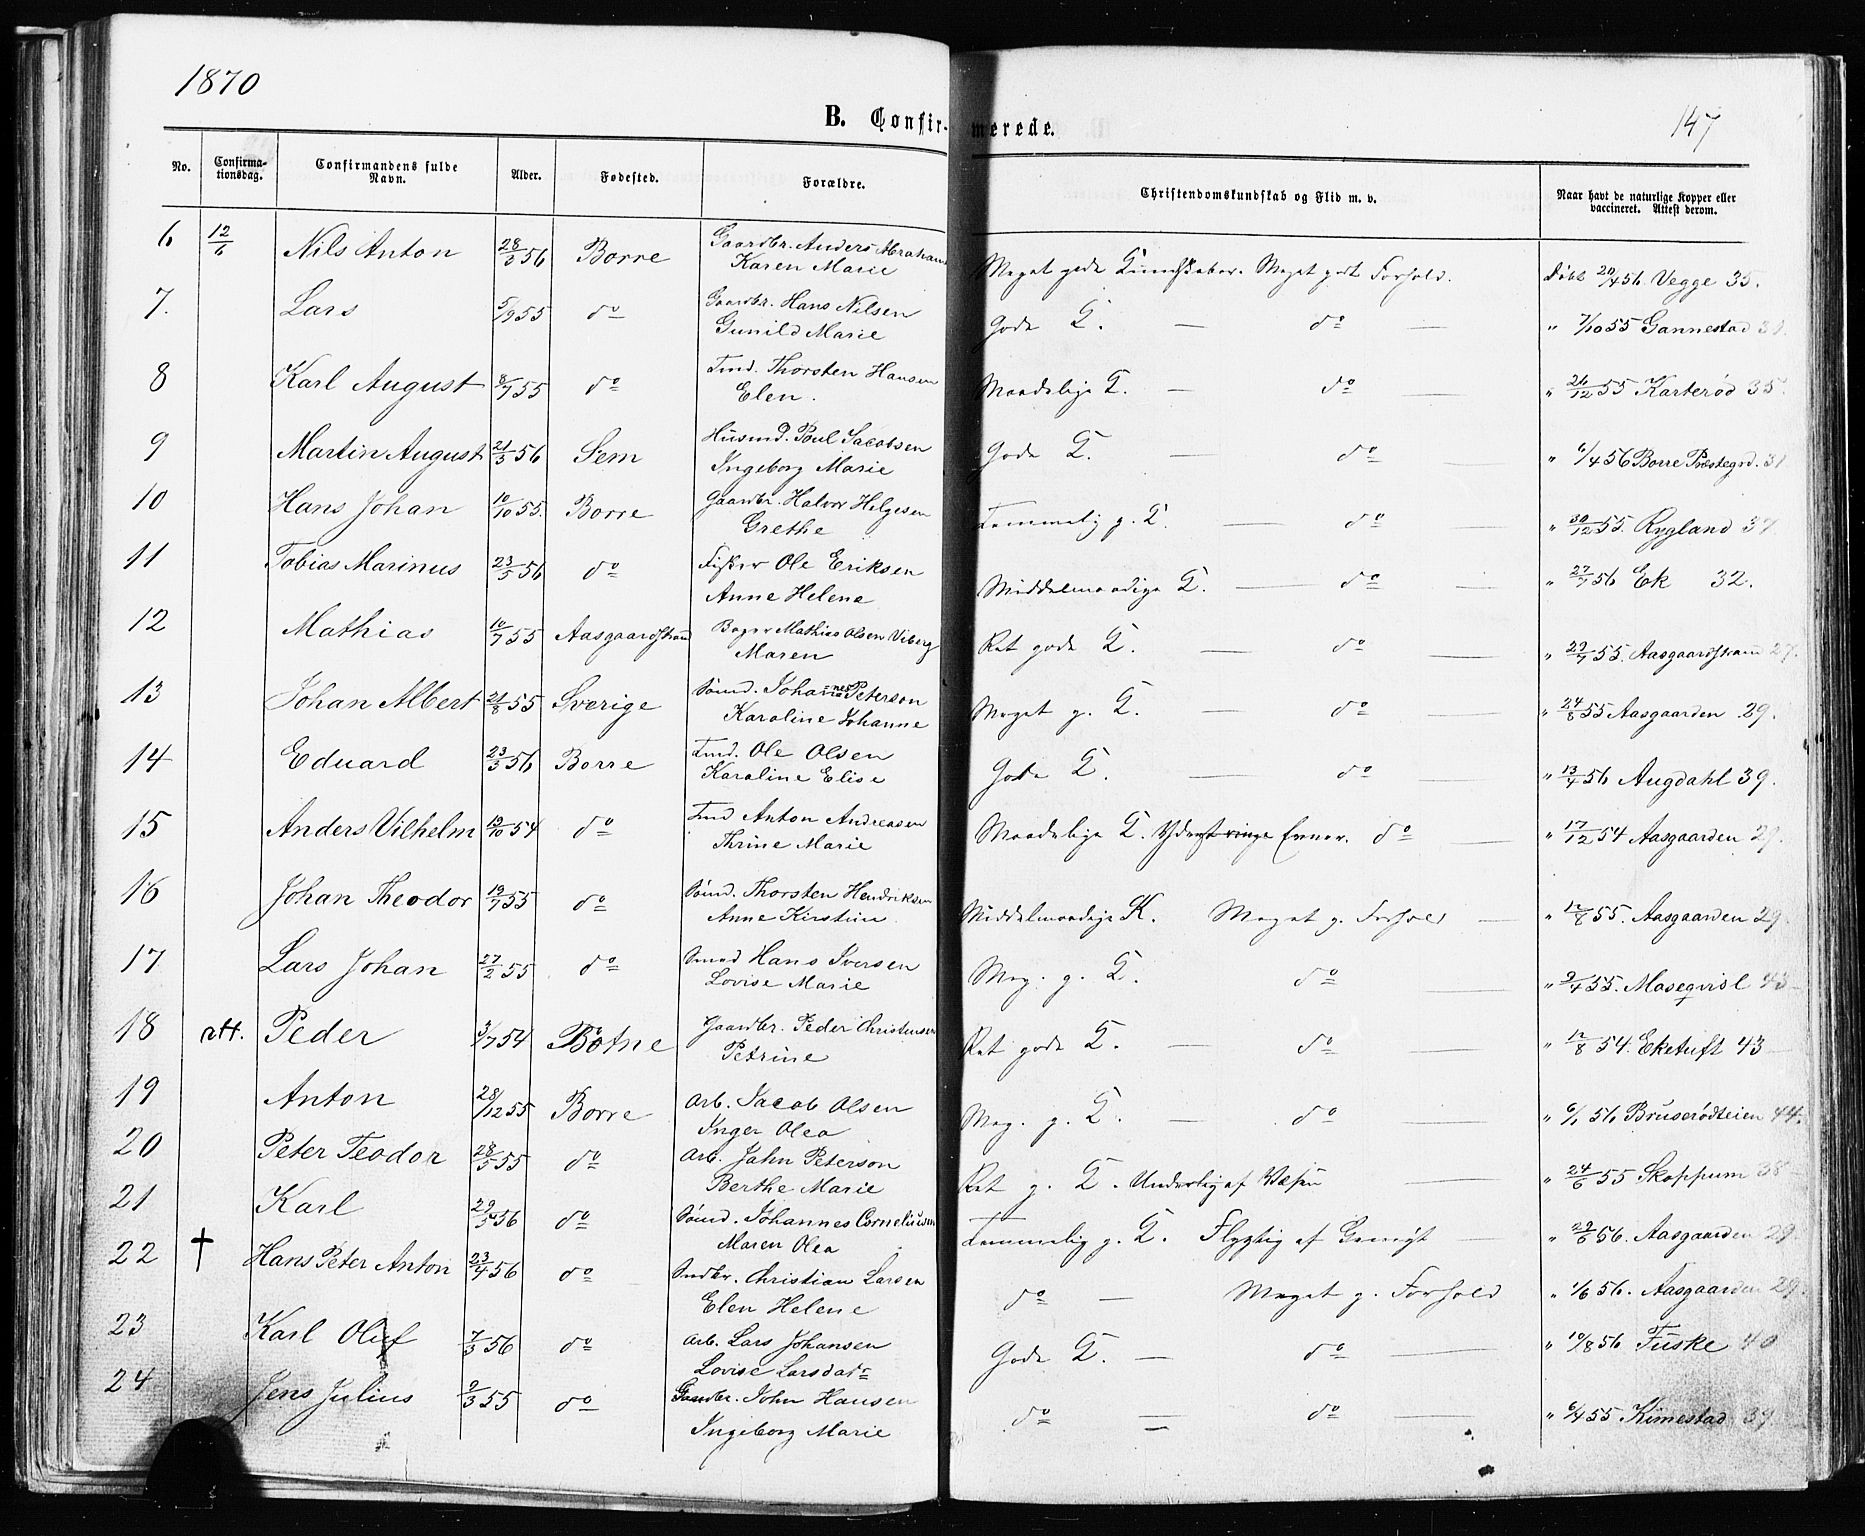 1870
147
B. Confirmerede.
No. Confirmationsdag. Confirmandens fulde Navn. Alder. Fødested. Forældre. Christendomskundskab og Flid m. v. Naar havt de naturlige Kopper eller vaccineret. Attest derom.
6 12/6 Nils Anton 28/3 56 Borre Gaardbr. Anders Abraham Meget gode Kundskaber. Meget godt Forhold. Døbt 20/4 56. Vegge 35.
Karen Marie
7. Lars 5/9 55 do Gaardbr. Hans Nilsen Gode K. — do — " 7/10 55 Gannestad
Gunild Marie
8 Karl August 8/7 55 do Tmd. Thorsten Hansen Maadelige K. — do — " 26/12 55 Karterød 35.
Elen.
9 Martin August 21/3 56 Sem Husmd. Poul Jacobsen Gode K. — do — " 6/4 56 Borre Præstegrd. 31
Ingeborg Marie
10 Hans Johan 10/10 55. Borre Gaardbr. Halvor Helgesen Temmelig g. K. — do — " 30/12 55. Rygland 37
Grethe
11 Tobias Marinus 23/5 56 do Fisker Ole Eriksen Middelmaadige K. — do — " 27/7 56 Ek 32.
Anne Helene
12 Mathias 10/7 55 Aasgaardstrand Bager Mathias Olsen Viberg Ret gode K. — do — " 29/7 55. Aasgaardstrand 27.
Maren
13 Johan Albert 21/8 55 Sverige Sømd. Johannes Peterson Meget g. K. — do — " 24/8 55 Aasgaarden 29.
Karoline Johanne
14 Eduard 23/3 56 Borre Tmd. Ole Olsen Gode K. — do — " 13/4 56 Augdahl 39.
Karoline Elise
15 Anders Vilhelm 19/10 54 do Tmd Anton Andreasen Maadelige K. Yderst ringe Evner. do — " 17/12 54 Aasgaarden 29.
Thrine Marie
16 Johan Theodor 19/7 55 do Sømd. Thorsten Hendriksen Middelmaadige K. Meget g. Forhold — " 12/8 55. Aasgaarden 29.
Anne Kirstine
17 Lars Johan 27/2 55 do Smed Hans Iversen Meg. g. K. do — " 9/4 55. Maseqvisl 43 —
Lovise Marie
18 att. Peder 3/7 54 Botne Gaardbr. Peder Christensen Ret gode K. — do — " 12/8 54. Eketuft 43 —
Petrine
19 Anton 28/12 55 Borre Arb. Jacob Olsen Meg. g. K. — do — " 6/1 56 Bruserødteien 44.
Inger Olea
20 Peter Teodor 28/5 55 do Arb. John Peterson Ret g. K. Underlig af Væsen — " 24/6 55 Skoppum 38
Berthe Marie
21 Karl 29/5 56 do Sømd. Johannes Corneliusen Temmelig g. K. Flygtig af Gemyt — " 29/6 56. Aasgaarden 29.
Maren Olea
22 † Hans Peter Anton 23/4 56 do Snedkr. Christian Larsen do — Meget g. Forhold " 1/6 56. Aasgaarden 29.
Elen Helene
23 Karl Oluf 7/3 56 do Arb. Lars Johansen Gode K. — do — " 10/8 56 Fuske 40
Lovise Larsdatr
24 Jens Julius 9/3 55 do Gaardbr. John Hansen do — do — " 6/4 55 Kimestad 39.
Ingeborg Marie